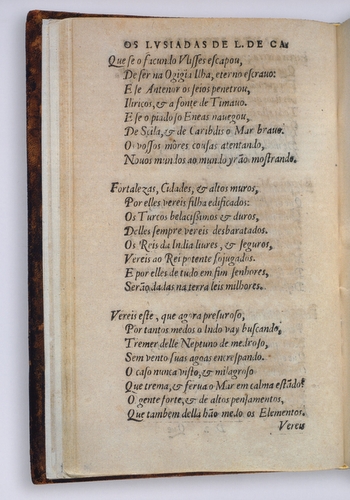 OS LVSIADAS DE L. DE CA.
Que se o facundo Vlisses escapou,
De ser na Ogigia Ilha, eterno escrauo:
E se Antenor os seios penetrou,
Iliricos, & a fonte de Timauo.
E se o piadoso Eneas nauegou,
De Scila, & de Caribdis o Mar brauo.
Os vossos môres cousas atentando,
Nouos mundos ao mundo yrão mostrando.
Fortalezas, Cidades, & altos muros,
Por elles vereis filha edificados:
Os Turcos belacissimos & duros,
Delles sempre vereis desbaratados.
Os Reis da India liures, & seguros,
Vereis ao Rei potente sojugados.
E por elles de tudo em fim senhores,
Serão dadas na terra leis milhores.
Vereis este, que agora presuroso,
Por tantos medos o Indo vay buscando,
Tremer delle Neptuno de medroso,
Sem vento suas agoas encrespando.
O caso nunca visto, & milagroso
Que trema, & ferua o Mar em calma estādo?
O gente forte, & de altos pensamentos,
Que tambem della hão medo os Elementos.
Vereis